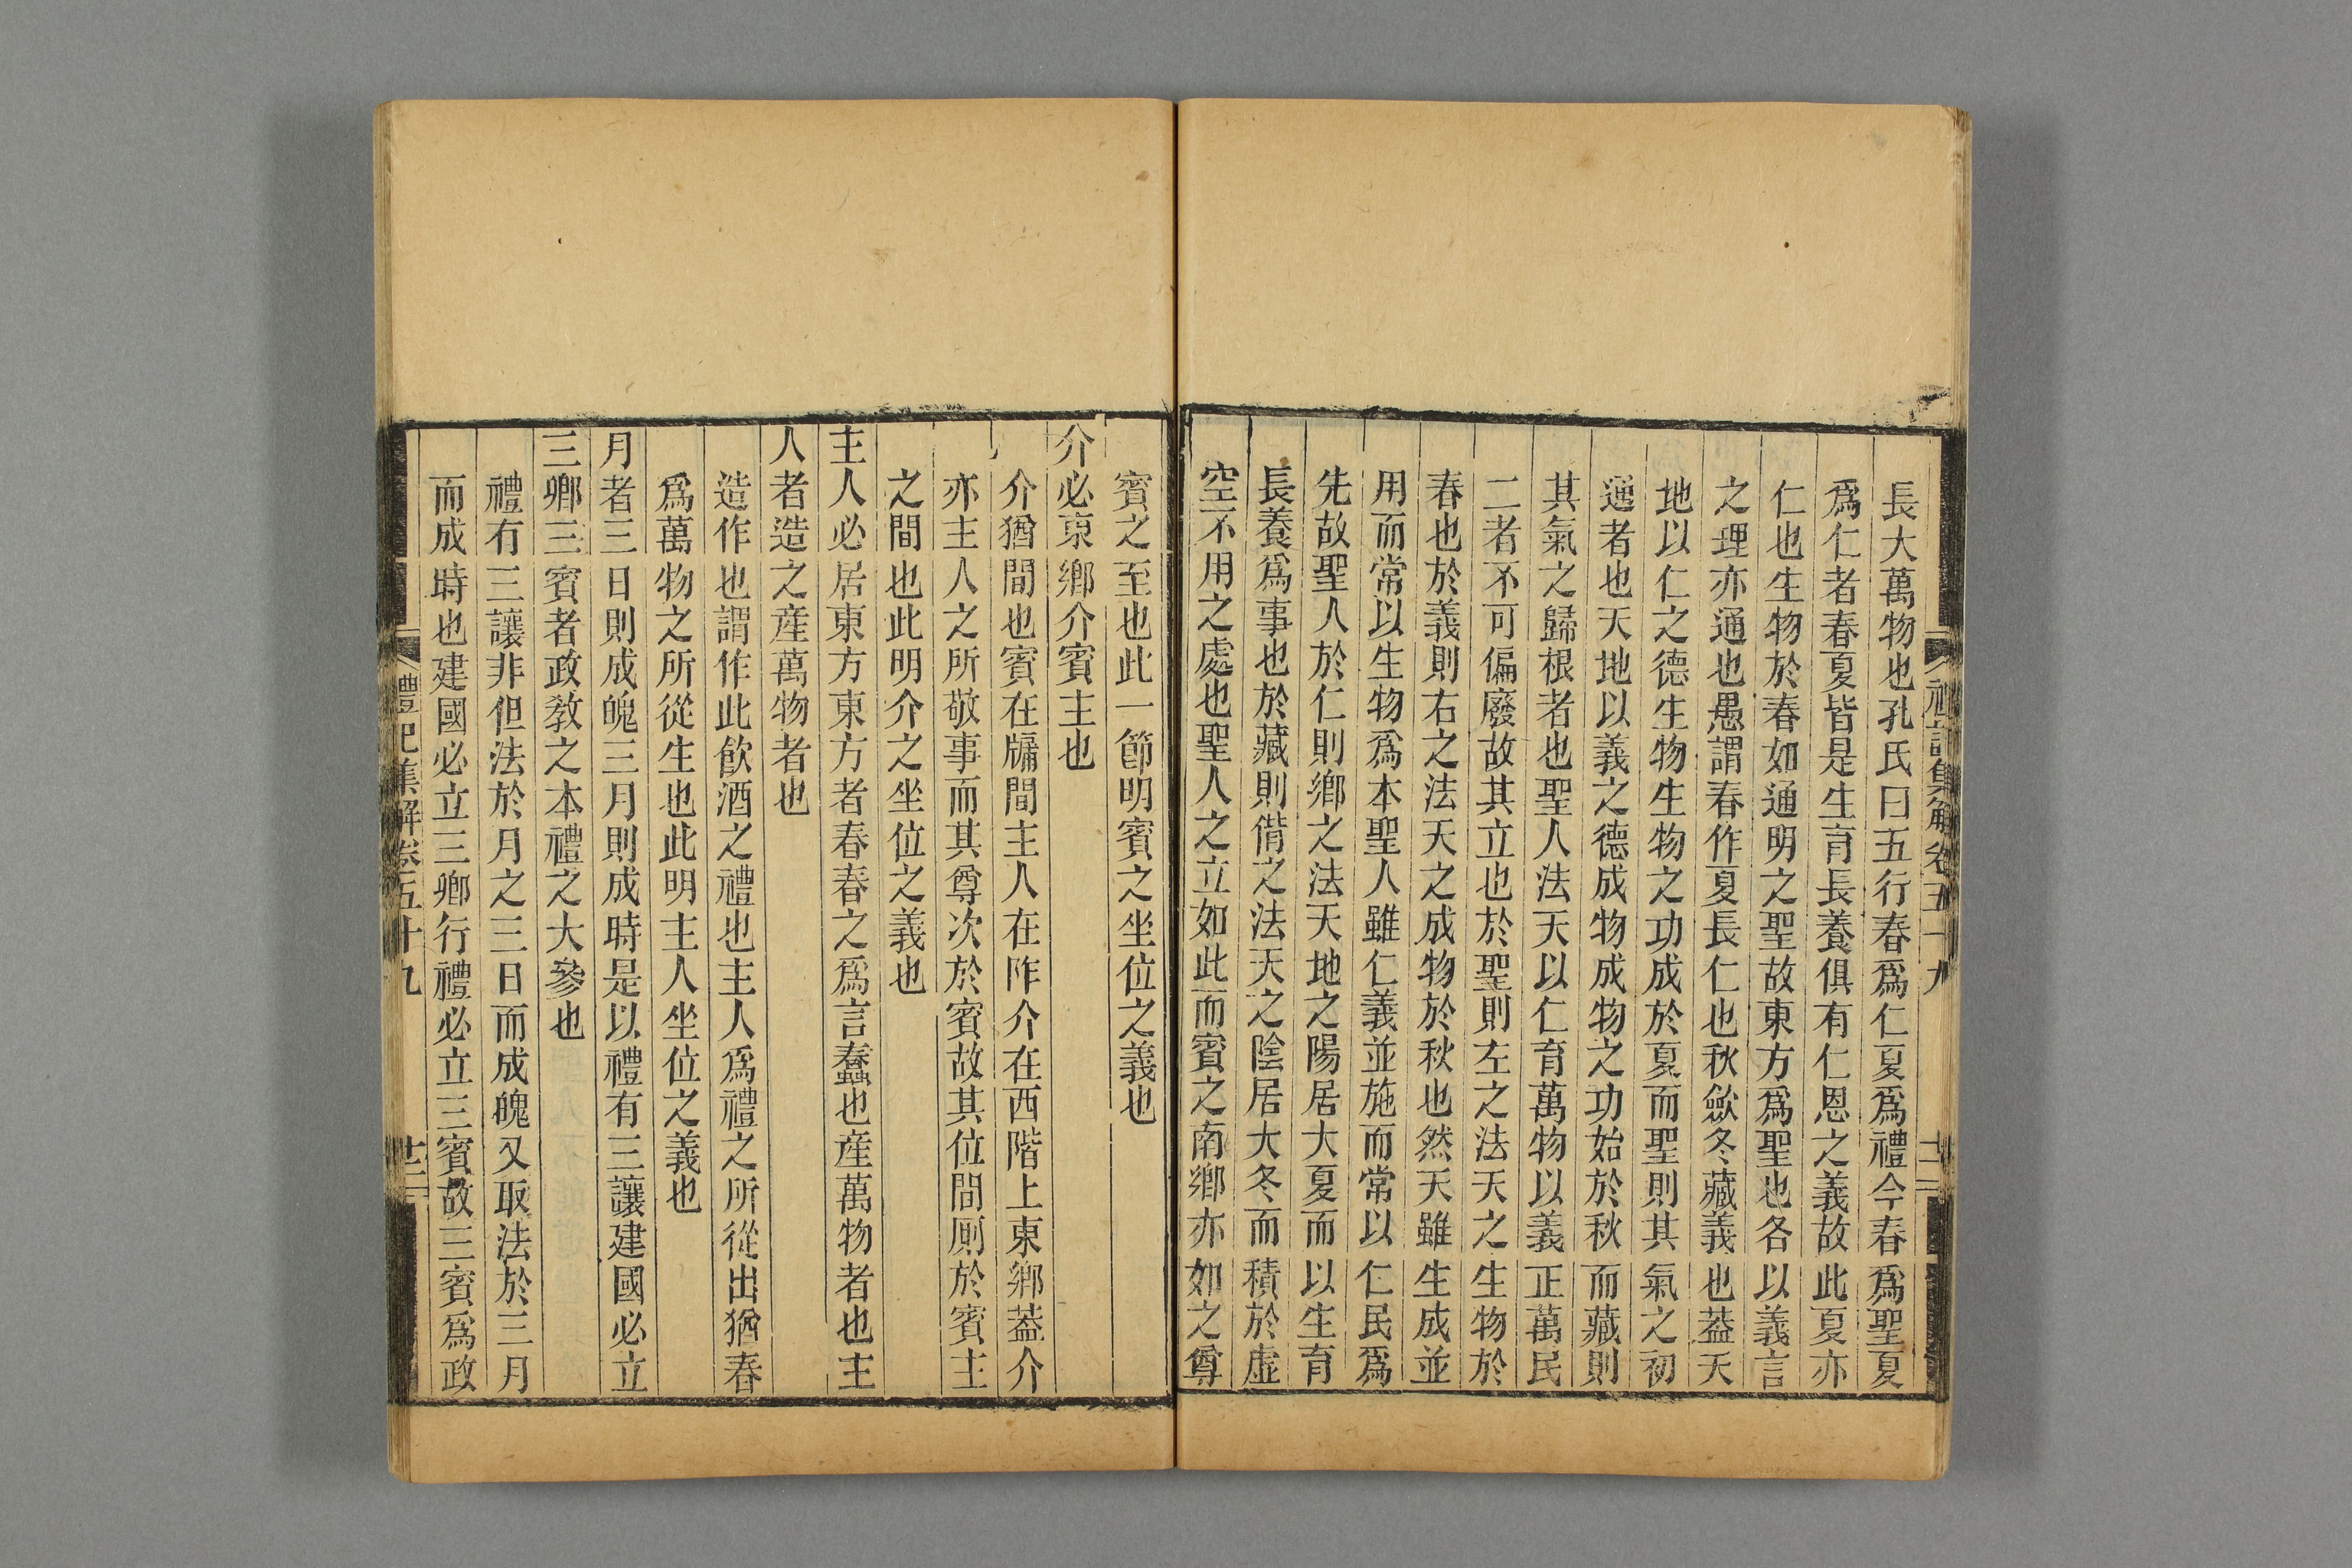 長大萬物也孔氏曰五行春爲仁夏爲禮今春爲聖夏
爲仁者春夏皆是生育長養俱有仁恩之義故此夏亦
仁也生物於春如通明之聖故東方爲聖也各以義言
之理亦通也愚謂春作夏長仁也秋斂冬藏義也蓋天
地以仁之德生物生物之功成於夏而聖則其氣之初
通者也天地以義之德成物成物之功始於秋而藏則
其氣之歸根者也聖人法天以仁育萬物以義正萬民
二者不可偏廢故其立也於聖則左之法天之生物於
春也於義則右之法天之成物於秋也然天雖生成並
用而常以生物爲本聖人雖仁義並施而常以仁民爲
先故聖人於仁則鄉之法天地之陽居大夏而以生育
長養爲事也於藏則偝之法天之陰居大冬而積於虛
空不用之處也聖人之立如此而賓之南鄉亦如之尊
賓之至也此一節明賓之坐位之義也
介必東鄉介賓主也
介猶間也賓在牖間主人在阼介在西階上東鄉蓋介
亦主人之所敬事而其尊次於賓故其位間厠於賓主
之間也此明介之坐位之義也
主人必居東方東方者春春之爲言蠢也産萬物者也主
人者造之産萬物者也
造作也謂作此飮酒之禮也主人爲禮之所從出猶春
爲萬物之所從生也此明主人坐位之義也
月者三日則成魄三月則成時是以禮有三讓建國必立
三卿三賓者政敎之本禮之大參也
禮有三讓非但法於月之三日而成魄又取法於三月
而成時也建國必立三卿行禮必立三賓故三賓爲政
禮記集解卷五十九